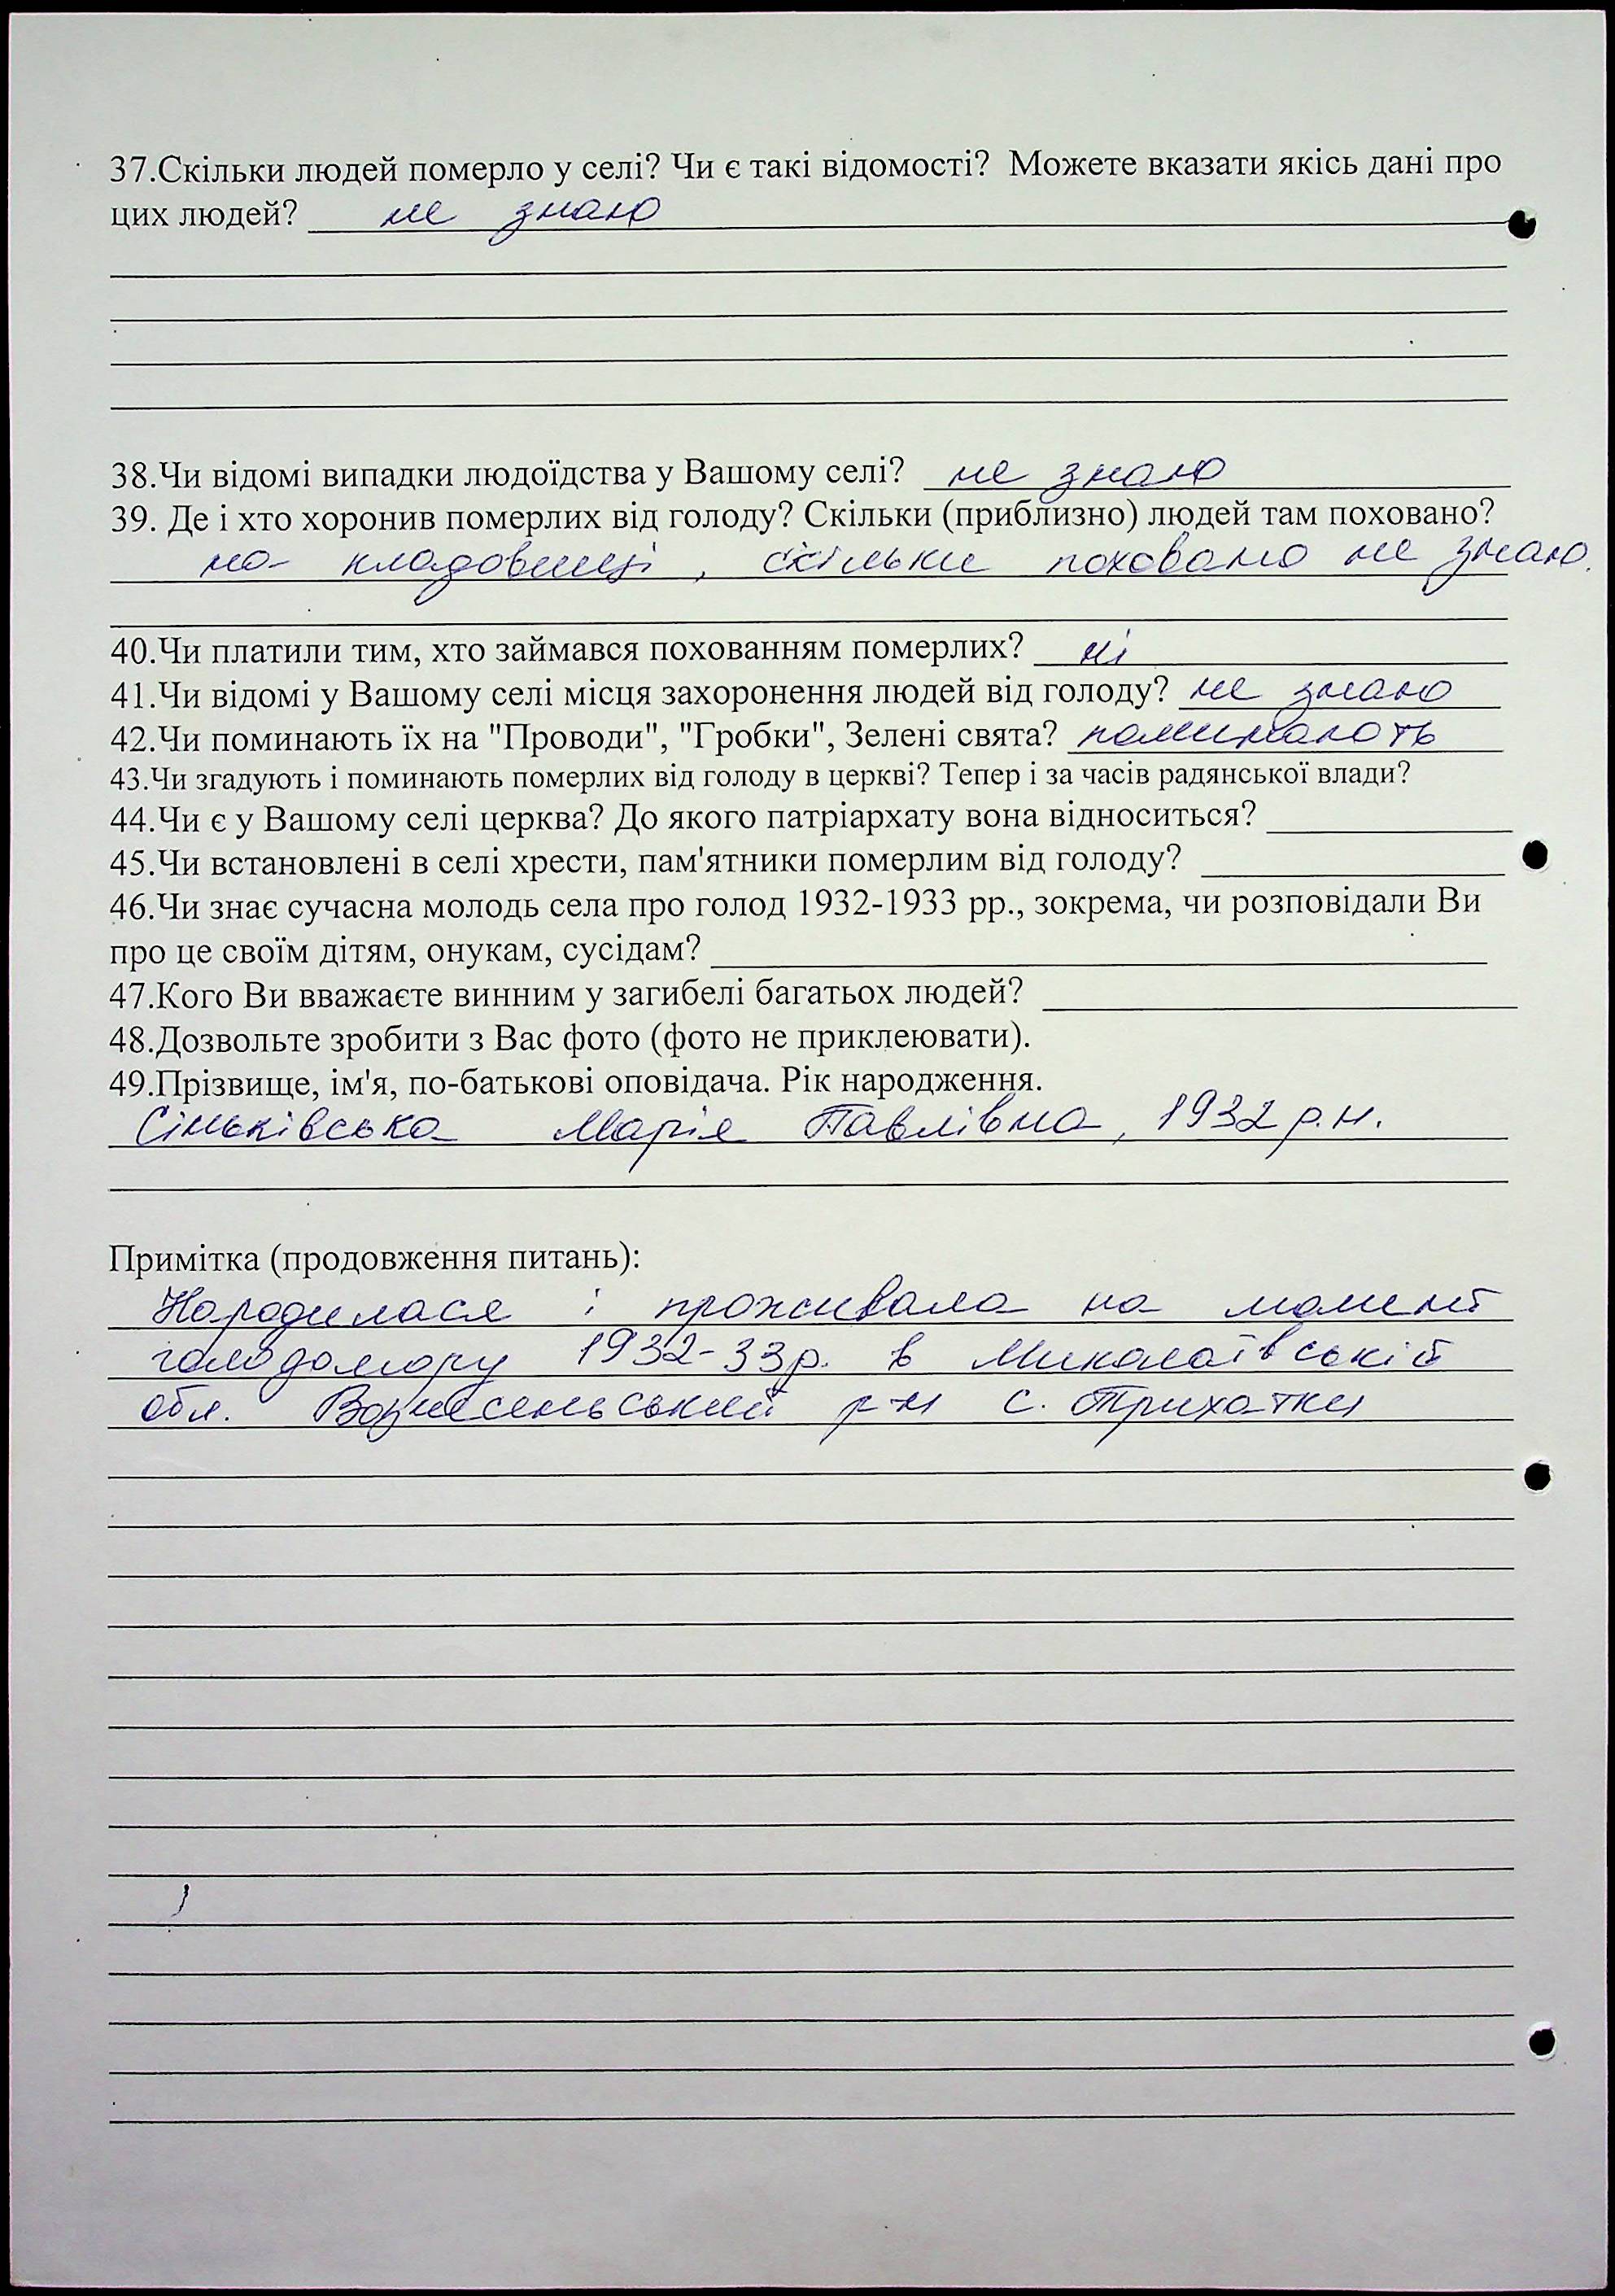 37.Скільки людей померло у селі? Чи є такі відомості? Можете вказати якісь дані про
цих людей? не знаю
38.Чи відомі випадки людоїдства у Вашому селі? не знаю
39. Де і хто хоронив померлих від голоду? Скільки (приблизно) людей там поховано?
на кладовищі, скільки поховано не знаю.
40.Чи платили тим, хто займався похованням померлих? ні
41.Чи відомі у Вашому селі місця захоронення людей від голоду? не знаю
42.Чи поминають їх на "Проводи", "Гробки", Зелені свята? поминають
43.Чи згадують і поминають померлих від голоду в церкві? Тепер і за часів радянської влади?
44.Чи є у Вашому селі церква? До якого патріархату вона відноситься?
45.Чи встановлені в селі хрести, пам'ятники померлим від голоду?
46.Чи знає сучасна молодь села про голод 1932-1933 рр., зокрема, чи розповідали Ви
про це своїм дітям, онукам, сусідам?
47.Кого Ви вважаєте винним у загибелі багатьох людей?
48.Дозвольте зробити з Вас фото (фото не приклеювати).
49.Прізвище, ім'я, по-батькові оповідача. Рік народження.
Сіньківська Марія Павлівна, 1932 р.н.
Примітка (продовження питань):
Народилася і проживала на момент
голодомору 1932-33р. в Миколаївській
обл. Вознесенський р-н с. Трихатки